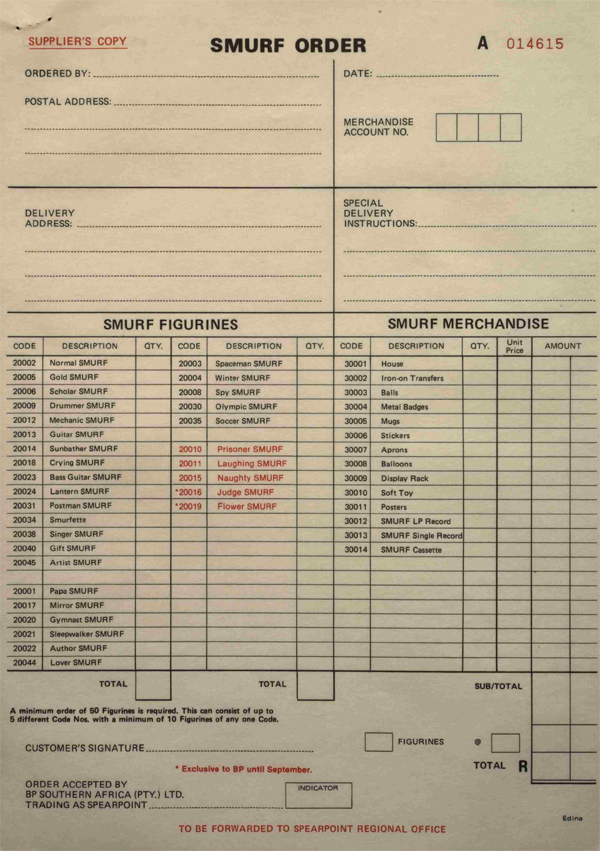 SUPPLIER'S COPY
SMURF ORDER
A 014615
ORDERED BY:
DATE:
POSTAL ADDRESS:
MERCHANDISE
ACCOUNT NO.
DELIVERY
ADDRESS:
SPECIAL
DELIVERY
INSTRUCTIONS:
SMURF FIGURINES
SMURF MERCHANDISE
CODE DESCRIPTION QTY. CODE DESCRIPTION QTY. CODE DESCRIPTION QTY. Unit Price AMOUNT
20002 Normal SMURF 20003 Spaceman SMURF 30001 House
20005 Gold SMURF 20004 Winter SMURF 30002 Iron-on Transfers
20006 Scholar SMURF 20008 Spy SMURF 30003 Balls
20009 Drummer SMURF 20030 Olympic SMURF 30004 Metal Badges
20012 Mechanic SMURF 20035 Soccer SMURF 30005 Mugs
20013 Guitar SMURF 30006 Stickers
20014 Sunbather SMURF 20010 Prisoner SMURF 30007 Aprons
20018 Crying SMURF 20011 Laughing SMURF 30008 Balloons
20023 Bass Guitar SMURF 20015 Naughty SMURF 30009 Display Rack
20024 Lantern SMURF *20016 Judge SMURF 30010 Soft Toy
20031 Postman SMURF *20019 Flower SMURF 30011 Posters
20034 Smurfette 30012 SMURF LP Record
20038 Singer SMURF 30013 SMURF Single Record
20040 Gift SMURF 30014 SMURF Cassette
20045 Artist SMURF
20001 Papa SMURF
20017 Mirror SMURF
20020 Gymnast SMURF
20021 Sleepwalker SMURF
20022 Author SMURF
20044 Lover SMURF
TOTAL TOTAL SUB/TOTAL
A minimum order of 50 Figurines is required. This can consist of up to
5 different Code Nos. with a minimum of 10 Figurines of any one Code.
CUSTOMER'S SIGNATURE
FIGURINES @
* Exclusive to BP until September.
TOTAL R
ORDER ACCEPTED BY
BP SOUTHERN AFRICA (PTY.) LTD.
TRADING AS SPEARPOINT
INDICATOR
Edina
TO BE FORWARDED TO SPEARPOINT REGIONAL OFFICE